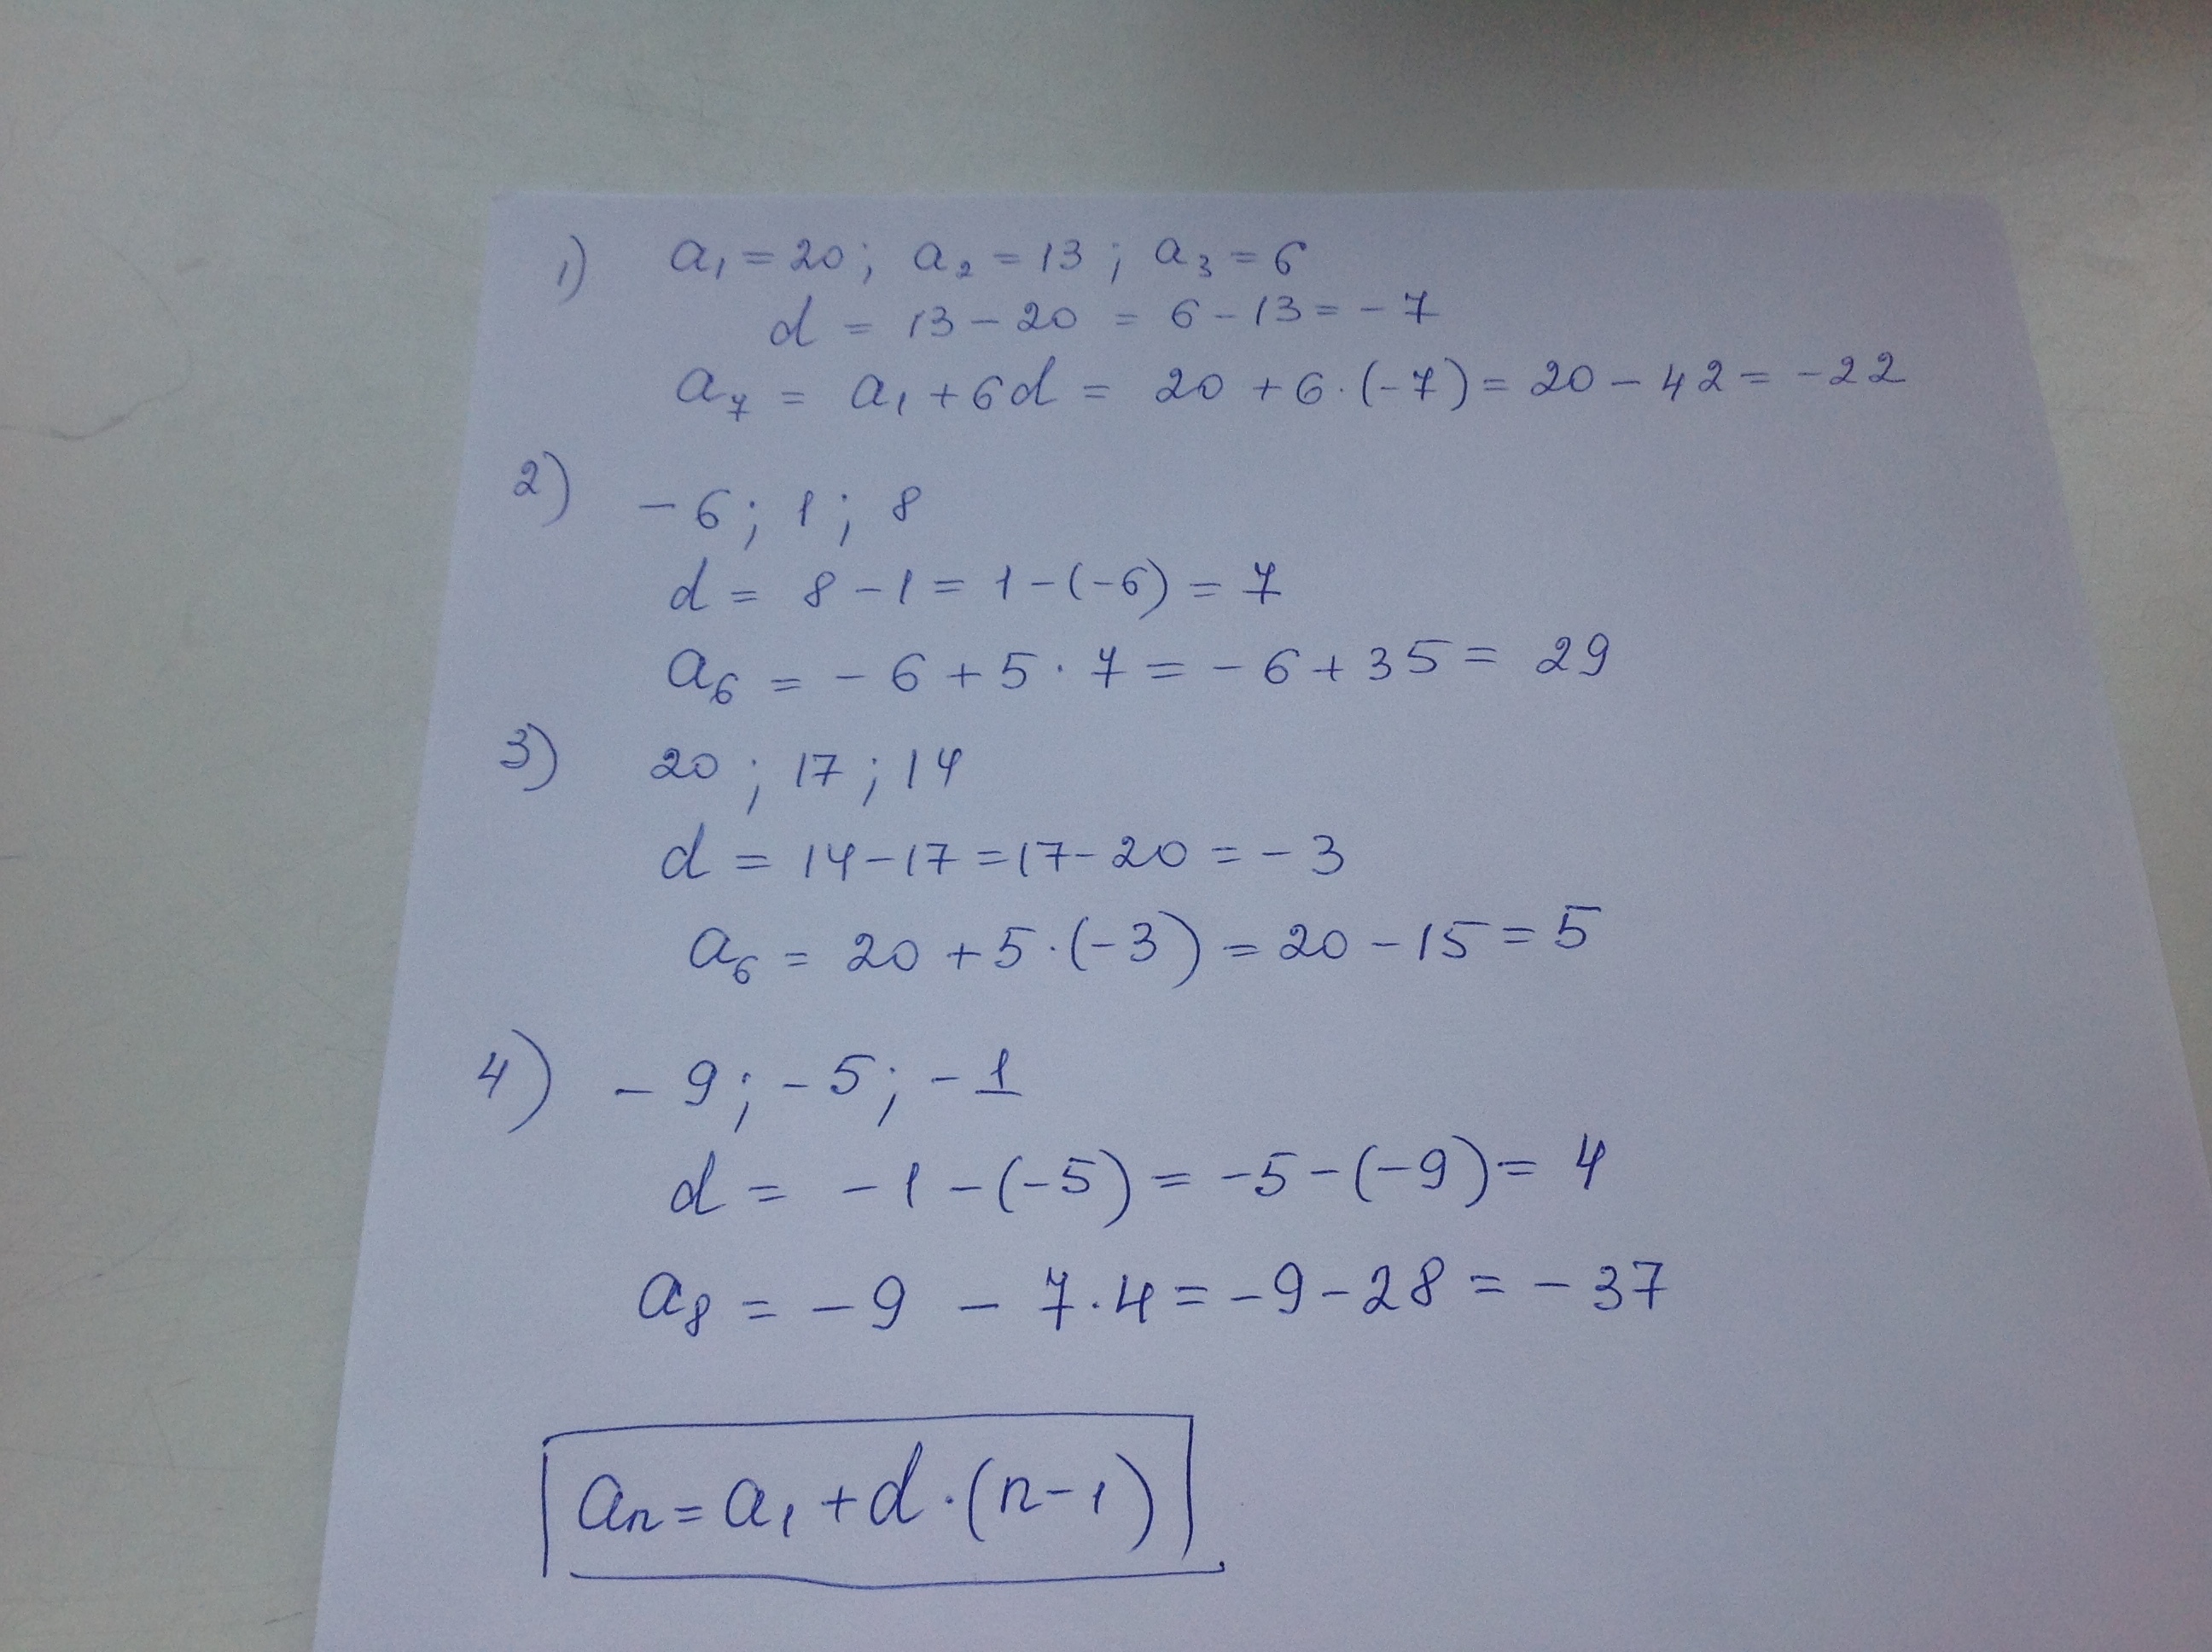 1) a₁ = 20; a₂ = 13; a₃ = 6
d = 13 - 20 = 6 - 13 = - 7
a₇ = a₁ + 6d = 20 + 6 · (-7) = 20 - 42 = -22
2) - 6; 1; 8
d = 8 - 1 = 1 - (-6) = 7
a₆ = - 6 + 5 · 7 = - 6 + 35 = 29
3) 20; 17; 14
d = 14 - 17 = 17 - 20 = - 3
a₆ = 20 + 5 · (-3) = 20 - 15 = 5
4) - 9; - 5; - 1
d = - 1 - (-5) = -5 - (-9) = 4
a₈ = - 9 - 7 · 4 = -9 - 28 = - 37
aₙ = a₁ + d · (n-1)